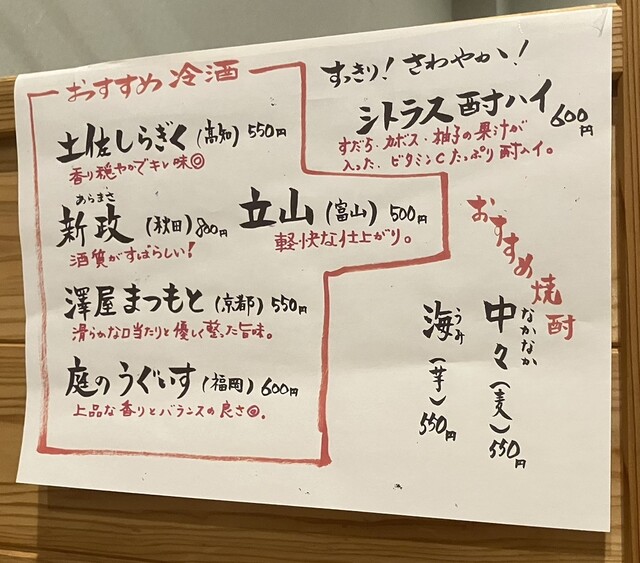 おすすめ 冷酒
土佐しらぎく (高知) 550円
香り穏やかでキレ味◎
あらまさ
新政 (秋田) 800円
酒質がすばらしい!
立山 (富山) 500円
軽快な仕上がり。
澤屋まつもと (京都) 550円
滑らかな口当たりと優しく整った旨味。
庭のうぐいす (福岡) 600円
上品な香りとバランスの良さ◎。
すっきり! さわやかい!
シトラス酎ハイ 600円
すだち・カボス・柚子の果汁が
入った、ビタミンCたっぷり酎ハイ。
おすすめ焼酎
なかなか
中々 (麦) 550円
うみ
海 (芋) 550円